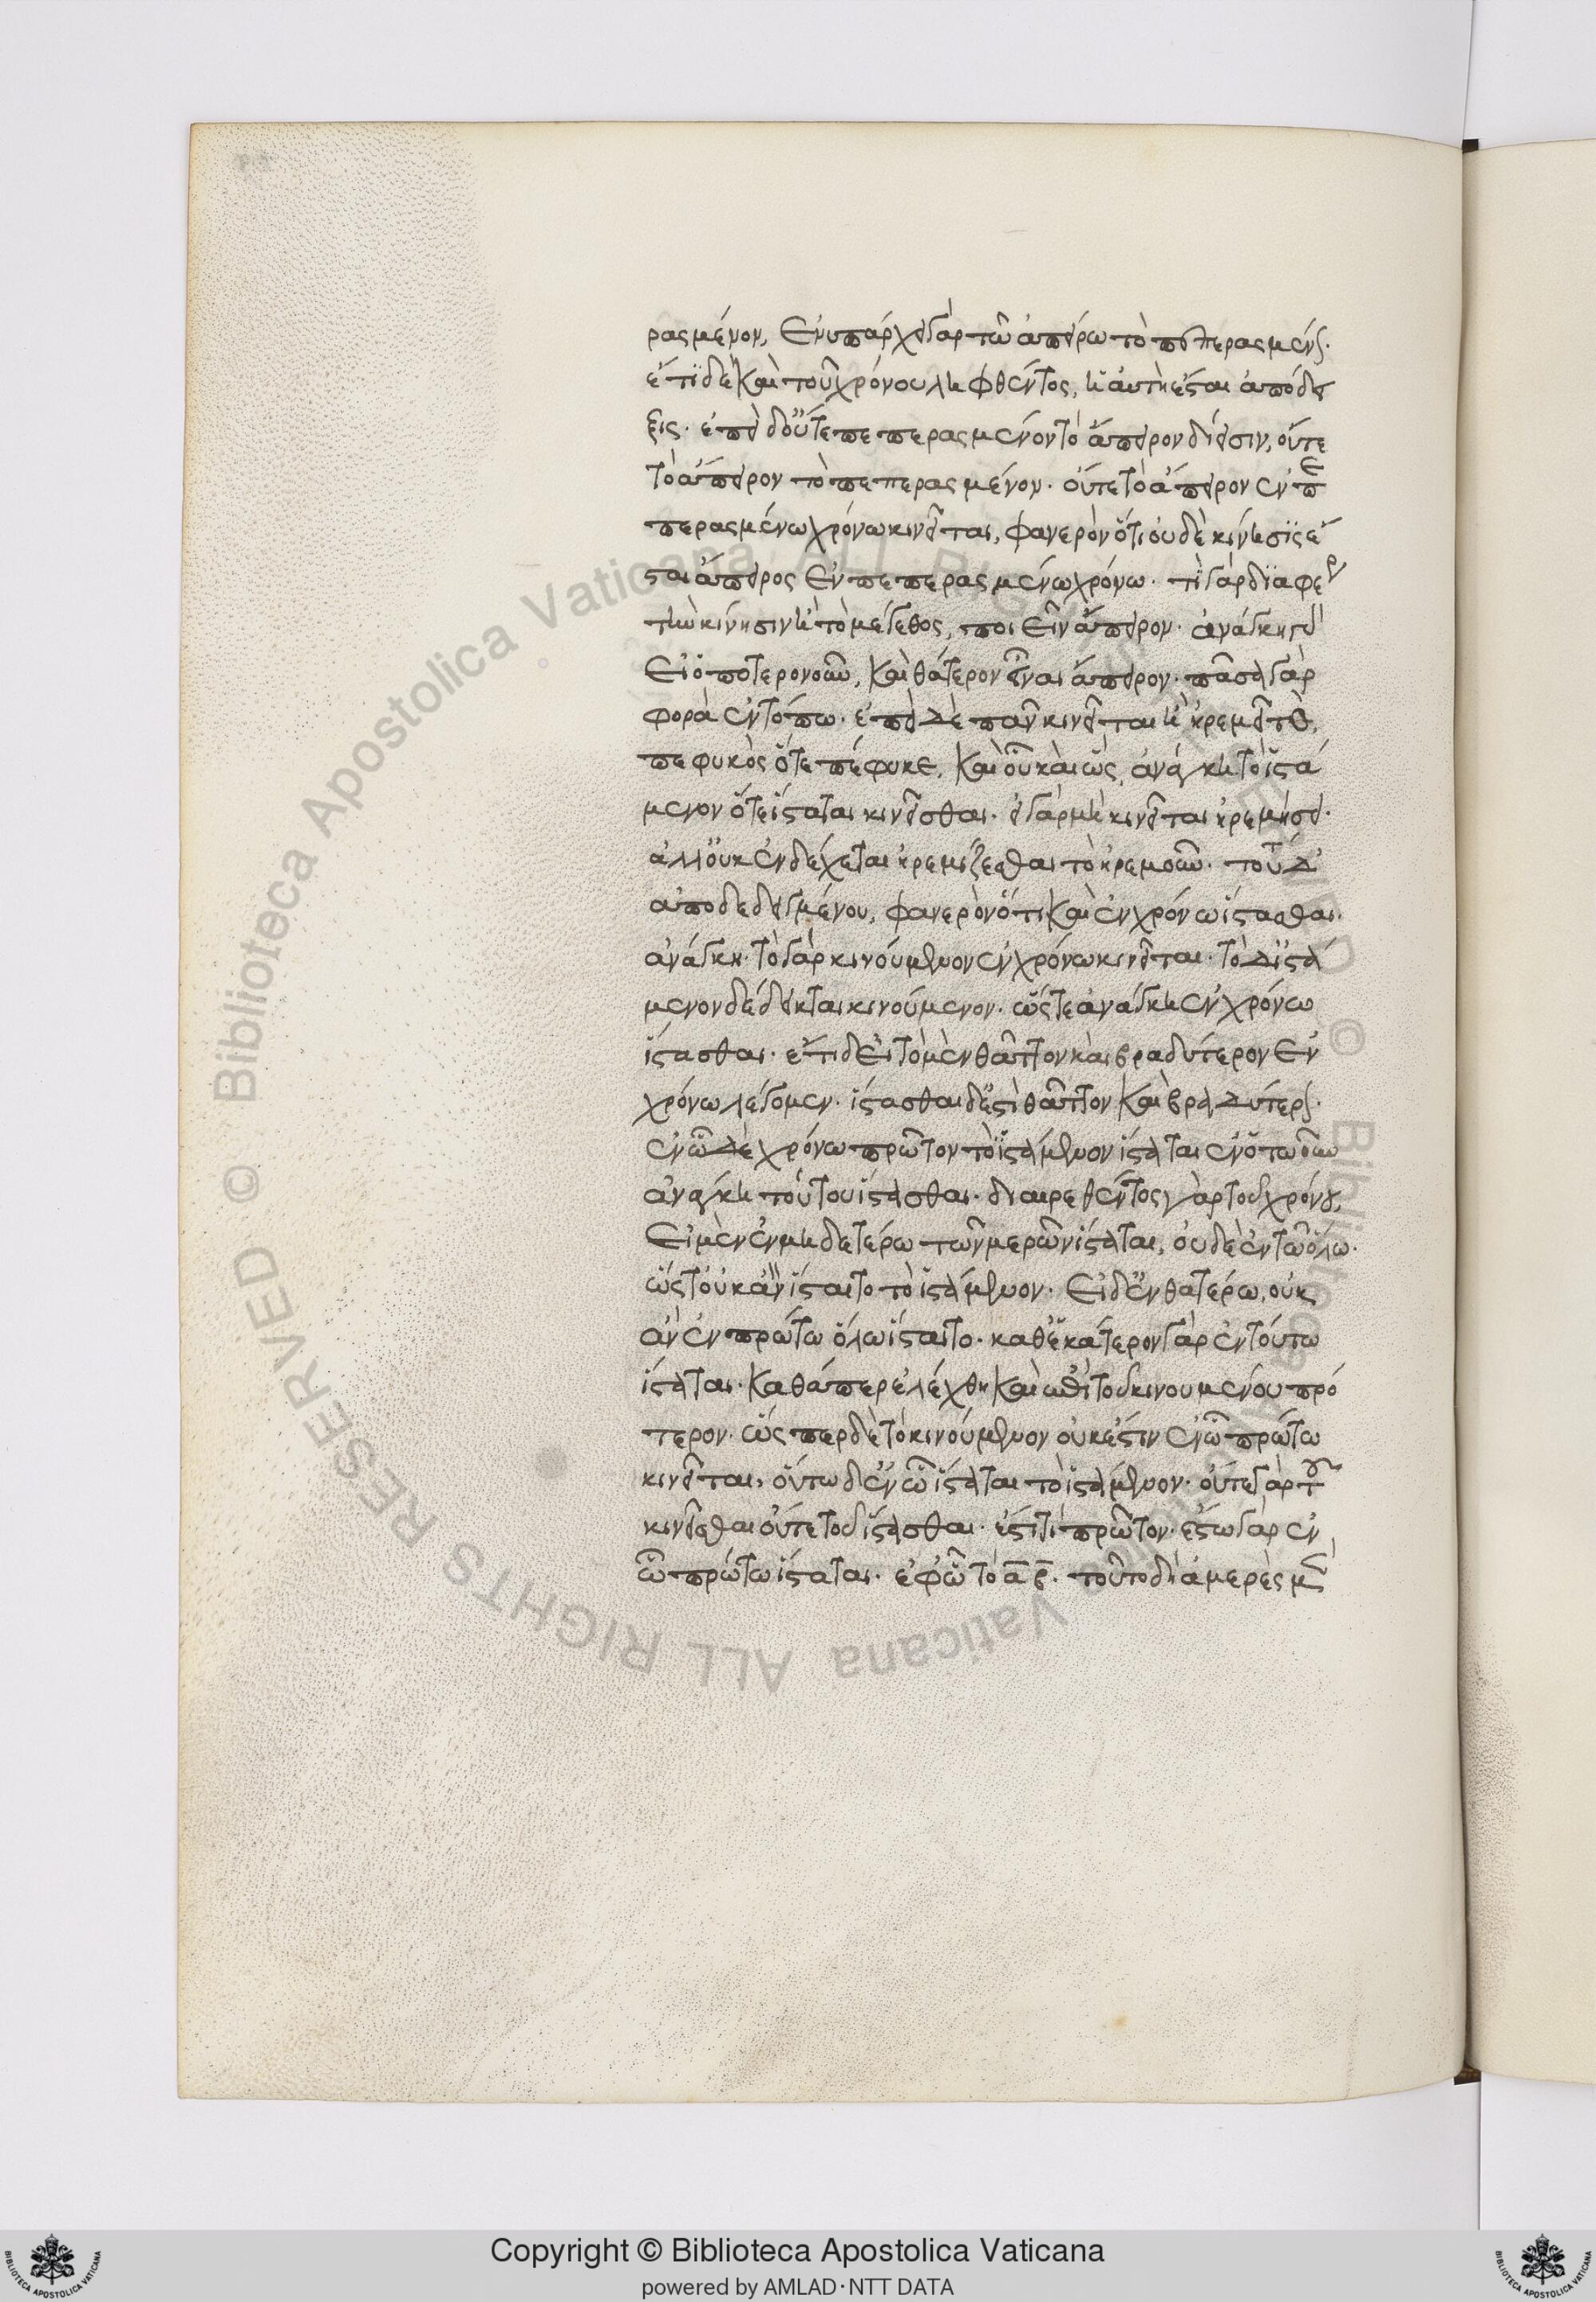 ρασμένον, ἐνυπάρχει γὰρ τῶ ἀπείρω τὸ πεπερασμένον.
ἔτι δὲ καὶ τοῦ χρόνου ληφθέντος, ἡ αὐτὴ ἔσται ἀπόδει
ξις. ἐπεὶ δ οὔτε πεπερασμένον τὸ ἄπειρον δίεισιν, οὔτε
τὸ ἄπειρον τὸ πεπερασμένον. οὔτε τὸ ἄπειρον ἐν πε
περασμένω χρόνω κινεῖται, φανερὸν ὅτι οὐδὲ κίνησις ἔ
σται ἄπειρος ἐν πεπερασμένω χρόνω. τί γὰρ διαφέρει
τὴν κίνησιν ἢ τὸ μέγεθος, ποιεῖν ἄπειρον. ἀνάγκη γὰρ
εἰ ὁποτερονοῦν, καὶ θάτερον εἶναι ἄπειρον. πᾶσα γὰρ
φορὰ ἐν τόπω. ἐπεὶ δὲ πᾶν κινεῖται ἢ ἠρεμεῖ τὸ,
πεφυκὸς ὅτε πέφυκε, καὶ οὗ καὶ ὥς, ἀνάγκη τὸ ἱστά
μενον ὅτε ἵσταται κινεῖσθαι. εἰ γὰρ μὴ κινεῖται ἠρεμήσει.
ἀλλ οὐκ ἐνδέχεται ἠρεμίζεσθαι τὸ ἠρεμοῦν. τούτου δ
ἀποδεδειγμένου, φανερὸν ὅτι καὶ ἐν χρόνω ἵστασθαι.
ἀνάγκη. τὸ γὰρ κινούμενον ἐν χρόνω κινεῖται. τὸ δ ἱστά
μενον δέδεικται κινούμενον. ὥστε ἀνάγκη ἐν χρόνω
ἵστασθαι. ἔτι δ εἰ τὸ μὲν θᾶττον καὶ βραδύτερον ἐν
χρόνω λέγομεν. ἵστασθαι δ ἔστι θᾶττον καὶ βραδύτερον.
ἐν ὧ δὲ χρόνω πρῶτον τὸ ἱστάμενον ἵσταται ἐν ὁτωοῦν
ἀνάγκη τούτου ἵστασθαι. διαιρεθέντος γὰρ τοῦ χρόνου,
εἰ μὲν ἐν μηδετέρω τῶν μερῶν ἵσταται, οὐδὲ ἐν τῶ ὅλω.
ὥστ οὐκ ἂν ἵσταιτο τὸ ἱστάμενον. εἰ δ ἐν θατέρω, οὐκ
ἂν ἐν πρώτω ὅλω ἵσταιτο. καθ ἑκάτερον γὰρ ἐν τούτω
ἵσταται. καθάπερ ἐλέχθη καὶ ἐπὶ τοῦ κινουμένου πρό
τερον. ὥσπερ δὲ τὸ κινούμενον οὐκ ἔστιν ἐν ὧ πρώτω
κινεῖται, οὕτω δ ἐν ὧ ἵσταται τὸ ἱστάμενον. οὔτε γὰρ τοῦ
κινεῖσθαι οὔτε τοῦ ἵστασθαι. ἐστί τι πρῶτον. ἔστω γὰρ ἐν
ὧ πρώτω ἵσταται. ἐφ ὧ τὸ α β. τοῦτο δὴ ἀμερὲς μὲν